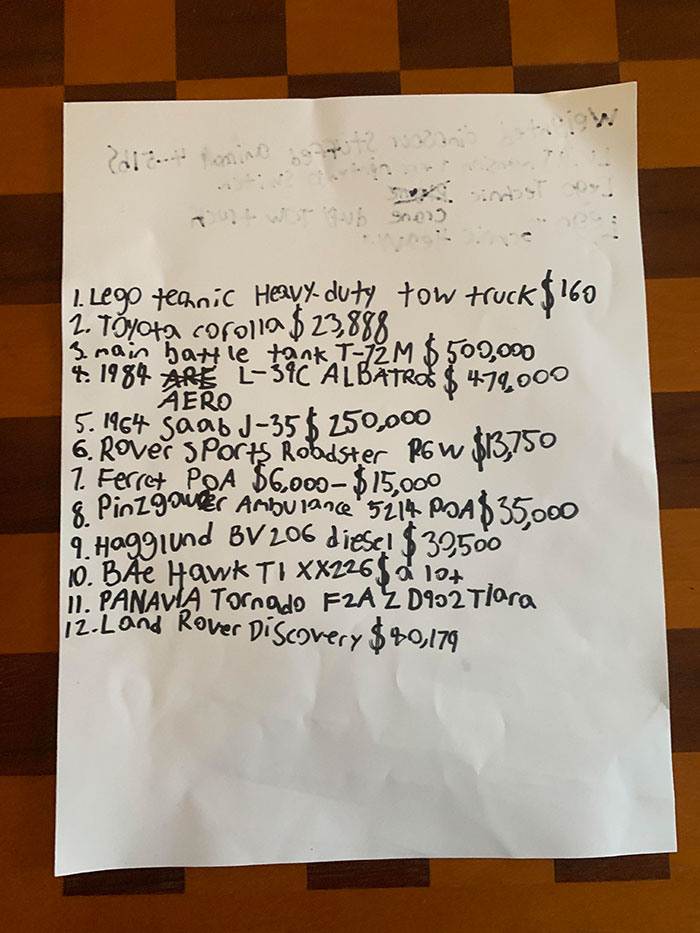 Weighted dinosaur Stuffed animal 4-5lbs
Lego Technic
crane duty tow truck
1. Lego technic Heavy-duty tow truck $160
2. Toyota corolla $23,888
3. main battle tank T-72M $500,000
4. 1984 L-39C ALBATROS $479,000
AERO
5. 1964 Saab J-35 $250,000
6. Rover SPorts Roadster P6W $13,750
7. Ferret POA $6,000-$15,000
8. Pinzgauer Ambulance 5214 POA $35,000
9. Hagglund BV206 diesel $39,500
10. BAe Hawk T1 XX226 $a lot
11. PANAVIA Tornado F2A ZD902 TIara
12. Land Rover Discovery $40,179